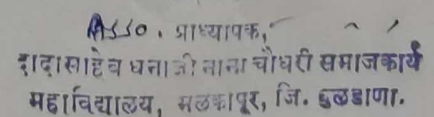 Asso. प्राध्यापक,
दादासाहेब धनाजी नाना चौधरी समाजकार्य
महाविद्यालय, मलकापूर, जि. बुलडाणा.